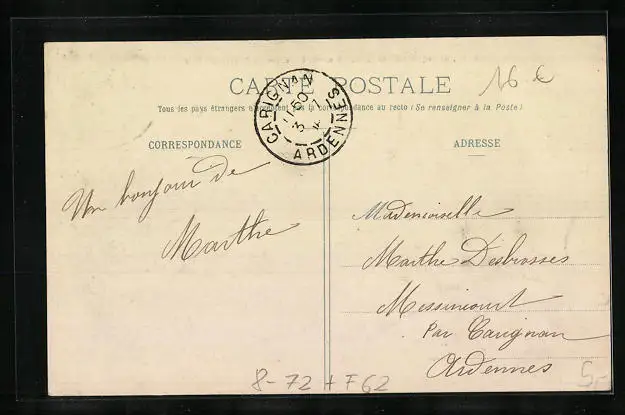 CARTE POSTALE
16 €
Tous les pays étrangers n'acceptent pas la correspondance au recto (Se renseigner à la Poste)
CARIGNAN
ARDENNES
CORRESPONDANCE
Un bonjour de
Marthe
ADRESSE
Mademoiselle
Marthe Desbrosses
Messincourt
Par Carignan
Ardennes
8-72 + F62